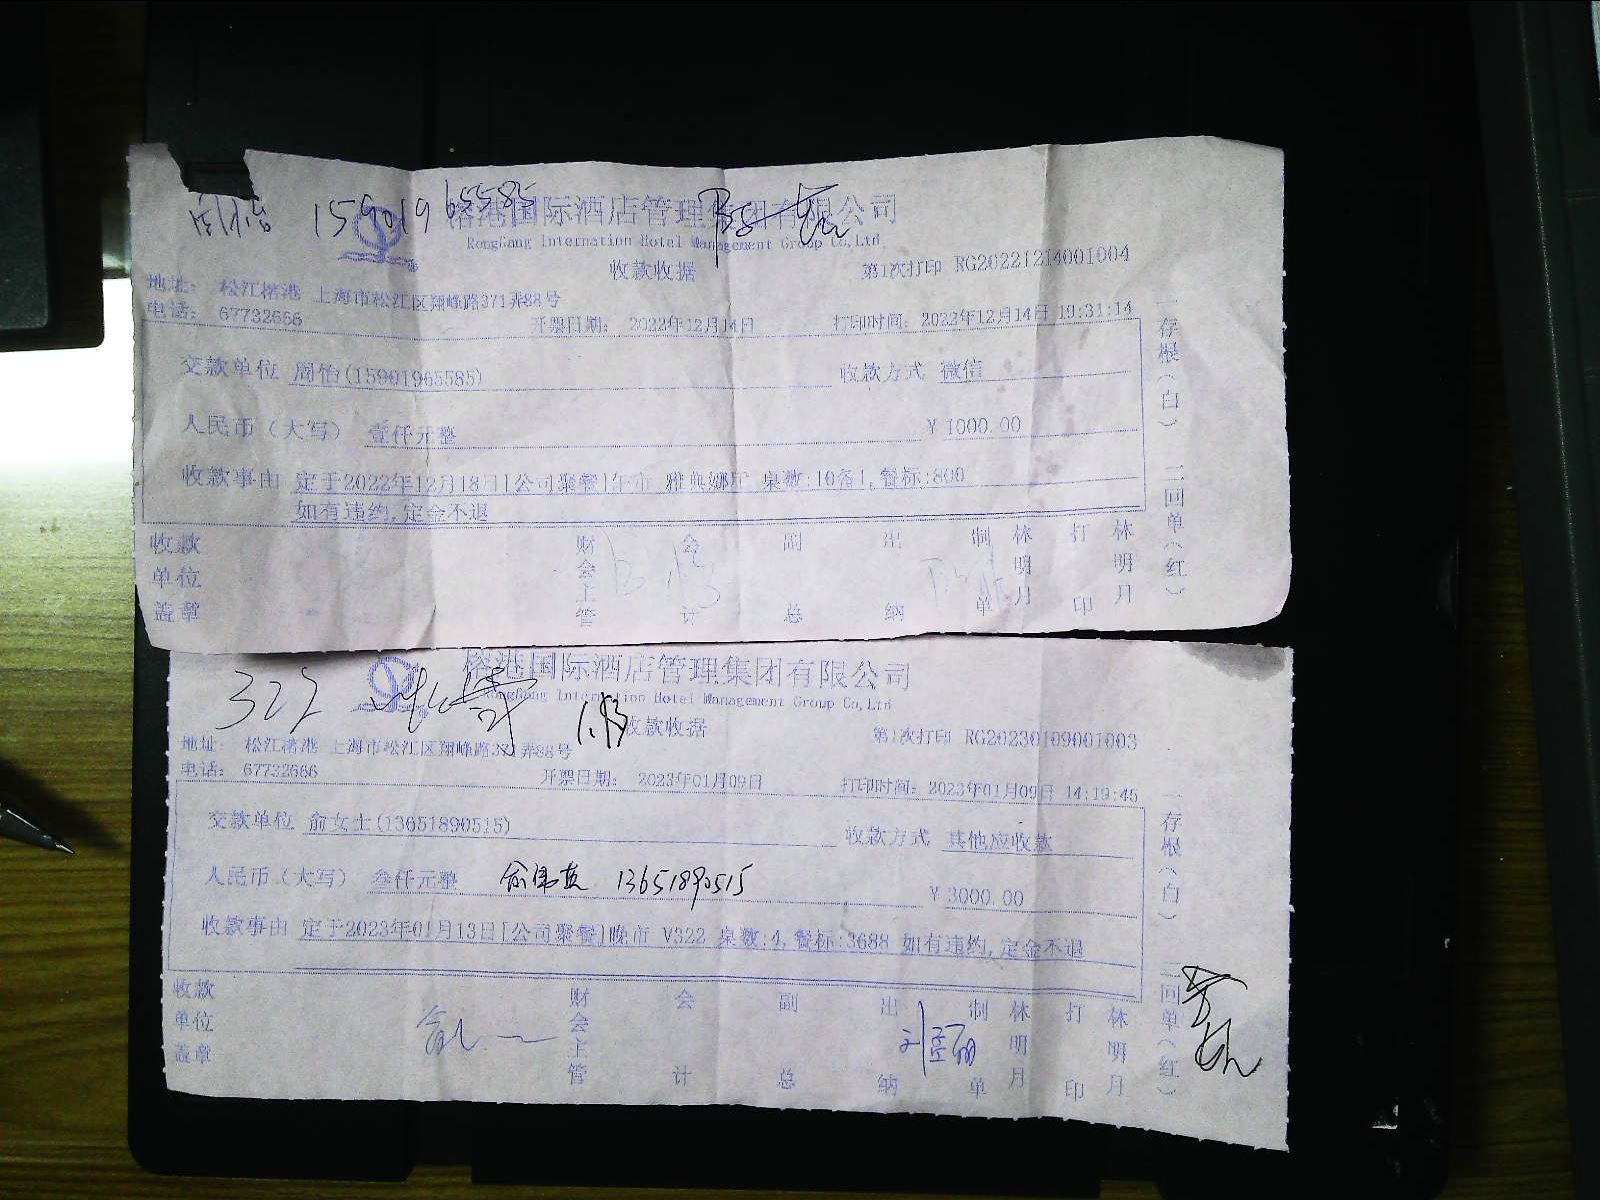 周怡 15901965585
榕港国际酒店管理集团有限公司
RongGang Internation Hotel Management Group Co,Ltd
收款收据
第1次打印 RG20221214001004
地址： 松江榕港 上海市松江区翔峰路371弄88号
电话： 67732666
开票日期： 2022年12月14日
打印时间：2022年12月14日 19:31:14
交款单位 周怡(15901965585)
收款方式 微信
人民币（大写） 壹仟元整
￥1000.00
收款事由 定于2022年12月18日[公司聚餐]午市 雅典娜厅 桌数:10备1,餐标:800
如有违约,定金不退
收款单位盖章
财会主管
会计
副总
出纳
制单
林明月
打印
林明月
一存根（白） 二回单（红）
322
1.13
榕港国际酒店管理集团有限公司
RongGang Internation Hotel Management Group Co,Ltd
收款收据
第1次打印 RG20230109001003
地址： 松江榕港 上海市松江区翔峰路371弄88号
电话： 67732666
开票日期： 2023年01月09日
打印时间：2023年01月09日 14:19:45
交款单位 俞女士(13651890515)
收款方式 其他应收款
人民币（大写） 叁仟元整
13651890515
￥3000.00
收款事由 定于2023年01月13日[公司聚餐]晚市 V322 桌数:4,餐标:3688 如有违约,定金不退
收款单位盖章
财会主管
会计
副总
出纳
制单
林明月
打印
林明月
一存根（白） 二回单（红）